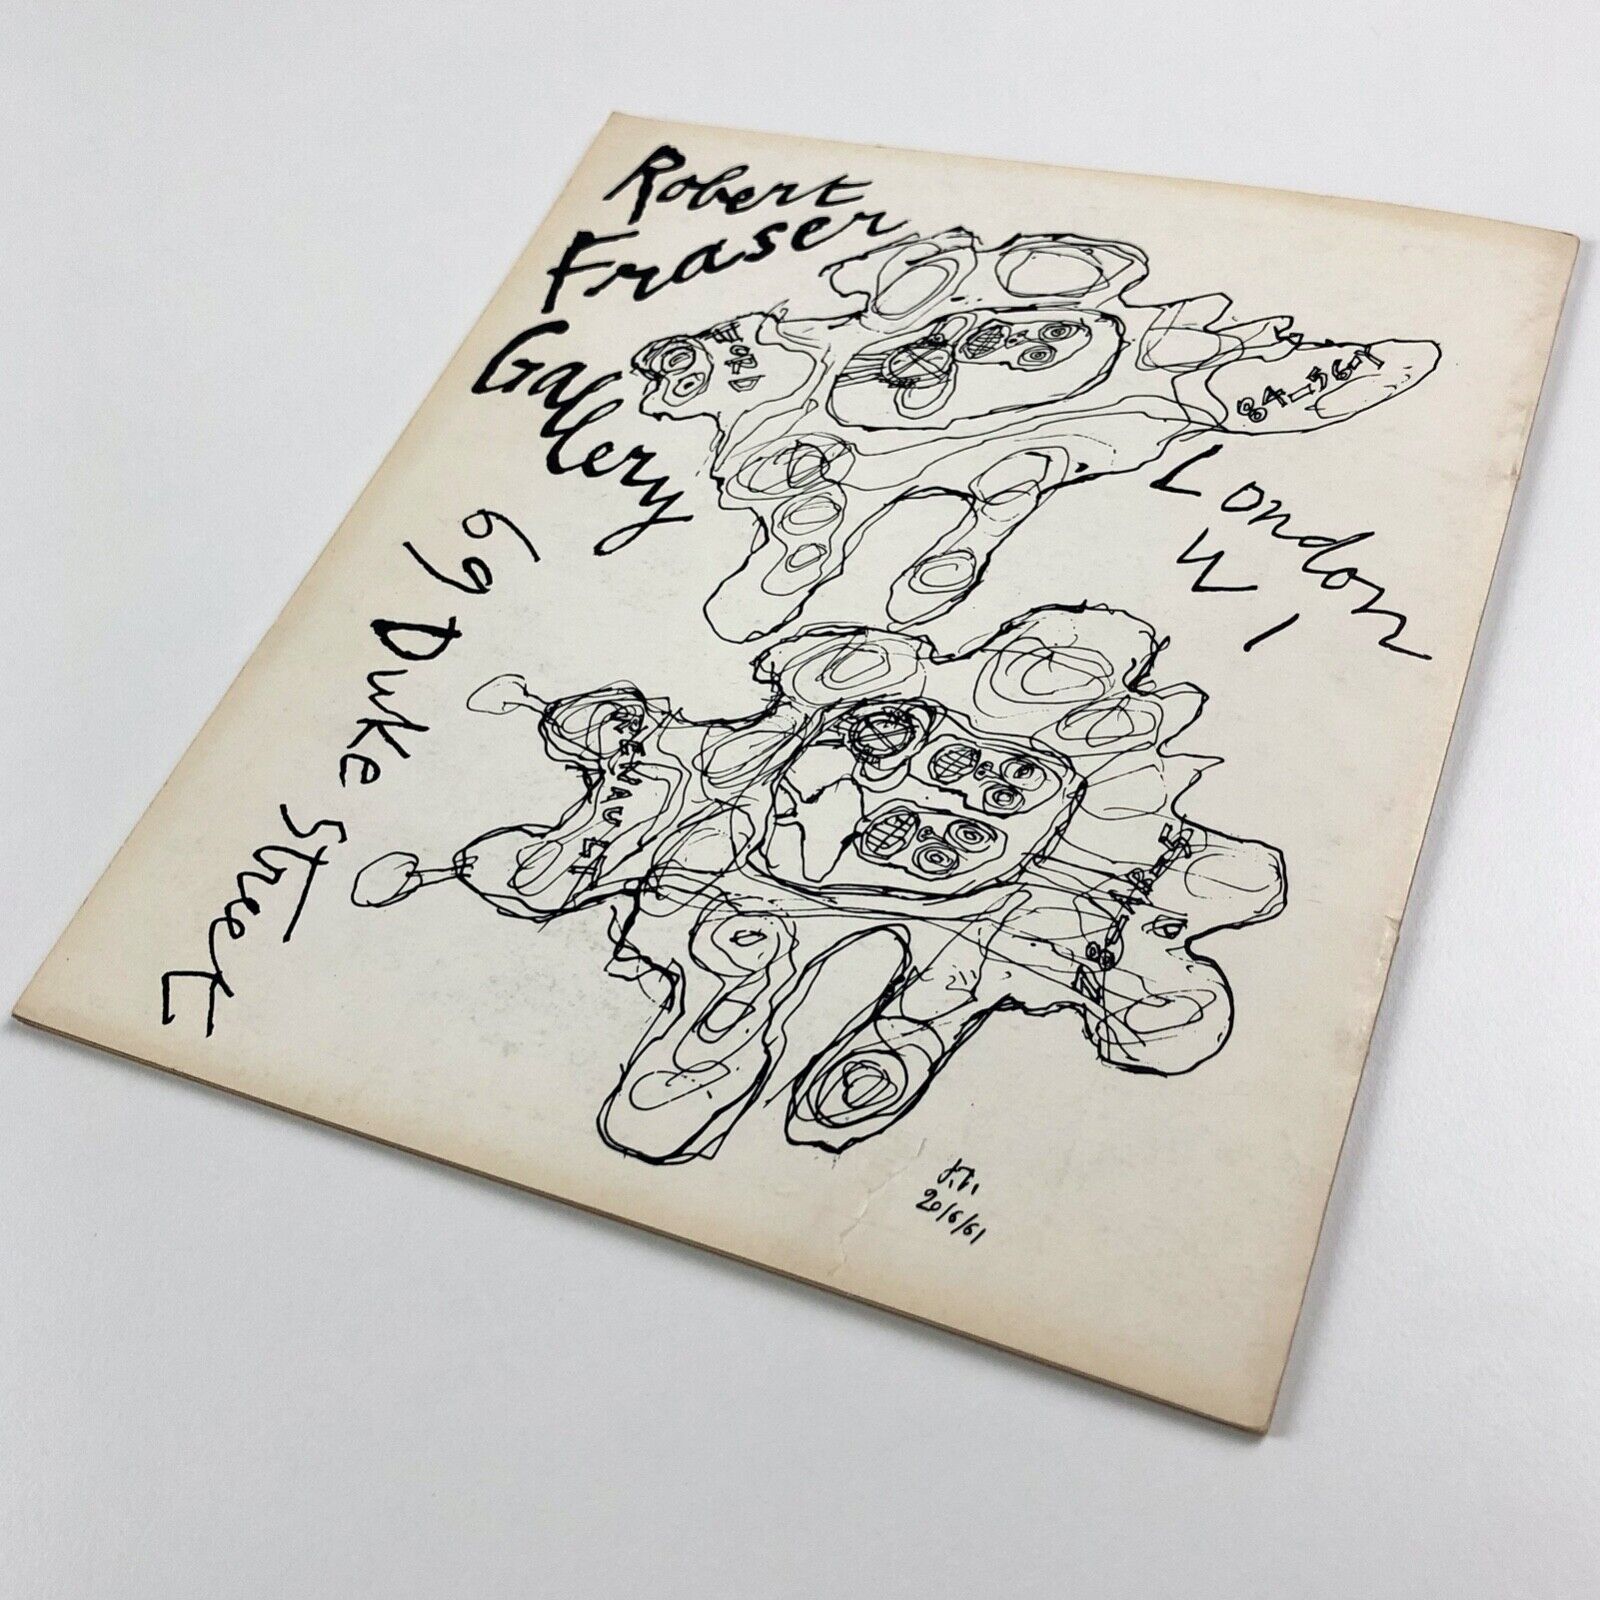 Robert
Fraser
Gallery
69 Duke Street
London
W 1
FORD
84-56-T
RENAULT
J.T.
20/6/61